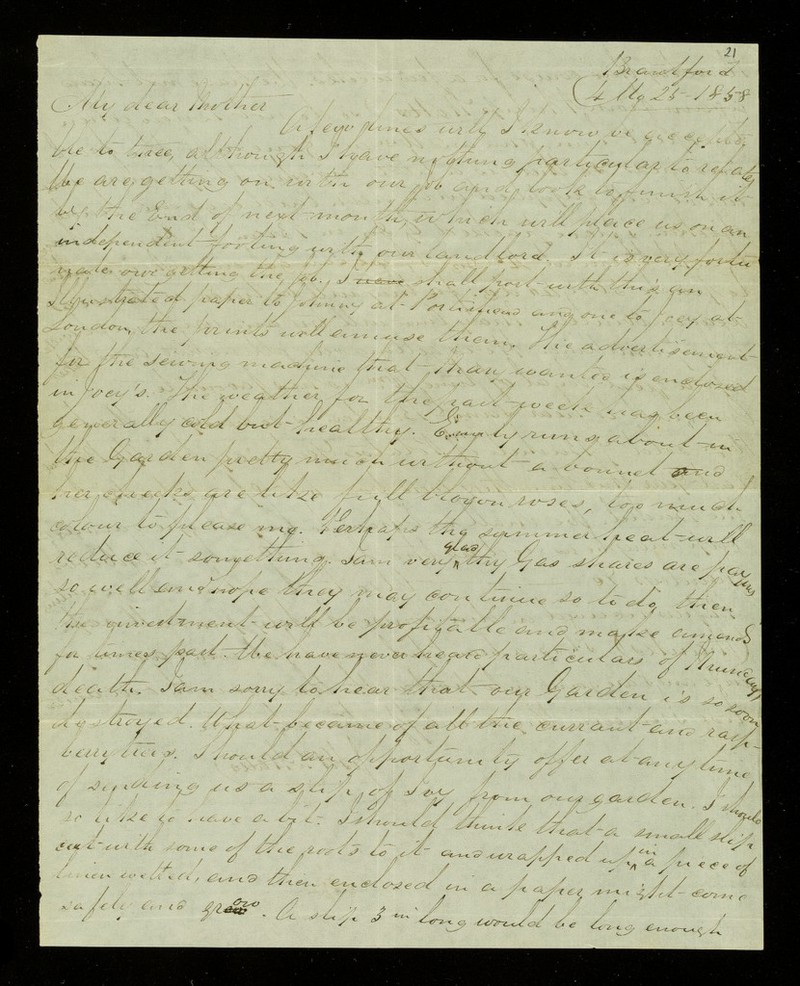 21
Brantford
4 Mo 25 - 1858
My dear Mother
A few lines will I know be accepta
ble to thee, although I have nothing particular to relate,
We are getting on with our job and look to finish it
by the End of next month, which will place us on an
independent footing with our landlord. It is very fortu
nate our getting the job. I have shall post with this an
Illustrated paper to Johnny at Portishead and one to Joey at
London, the prints will amuse them, the advertisement
for the sewing machine that wanted is enclosed
in Joey's. The weather for the past week has been
generally cold but healthy. Emily runs about in
the Garden pretty much without a bonnet and
her cheeks are like full blown roses, too much
colour to please me. Perhaps the summer heat will
reduce it something. I am very glad thy Gas shares are paying
so well and hope they may continue so to do, then
the investment will be profitable and make amends
for times past. We have never heard particulars of
death. I am sorry to hear that our Garden is so soon
destroyed. What became of all the currant and rasp-
berry trees. Should an opportunity offer at any time
of sending us a slip of Ivy from our garden. I should
so like to have a bit. I should think that a small slip
cut with some of the roots to it and wrapped up in a piece of
linen wetted, and then enclosed in a paper might come
safely and grow. A slip 3 in long would be long enough